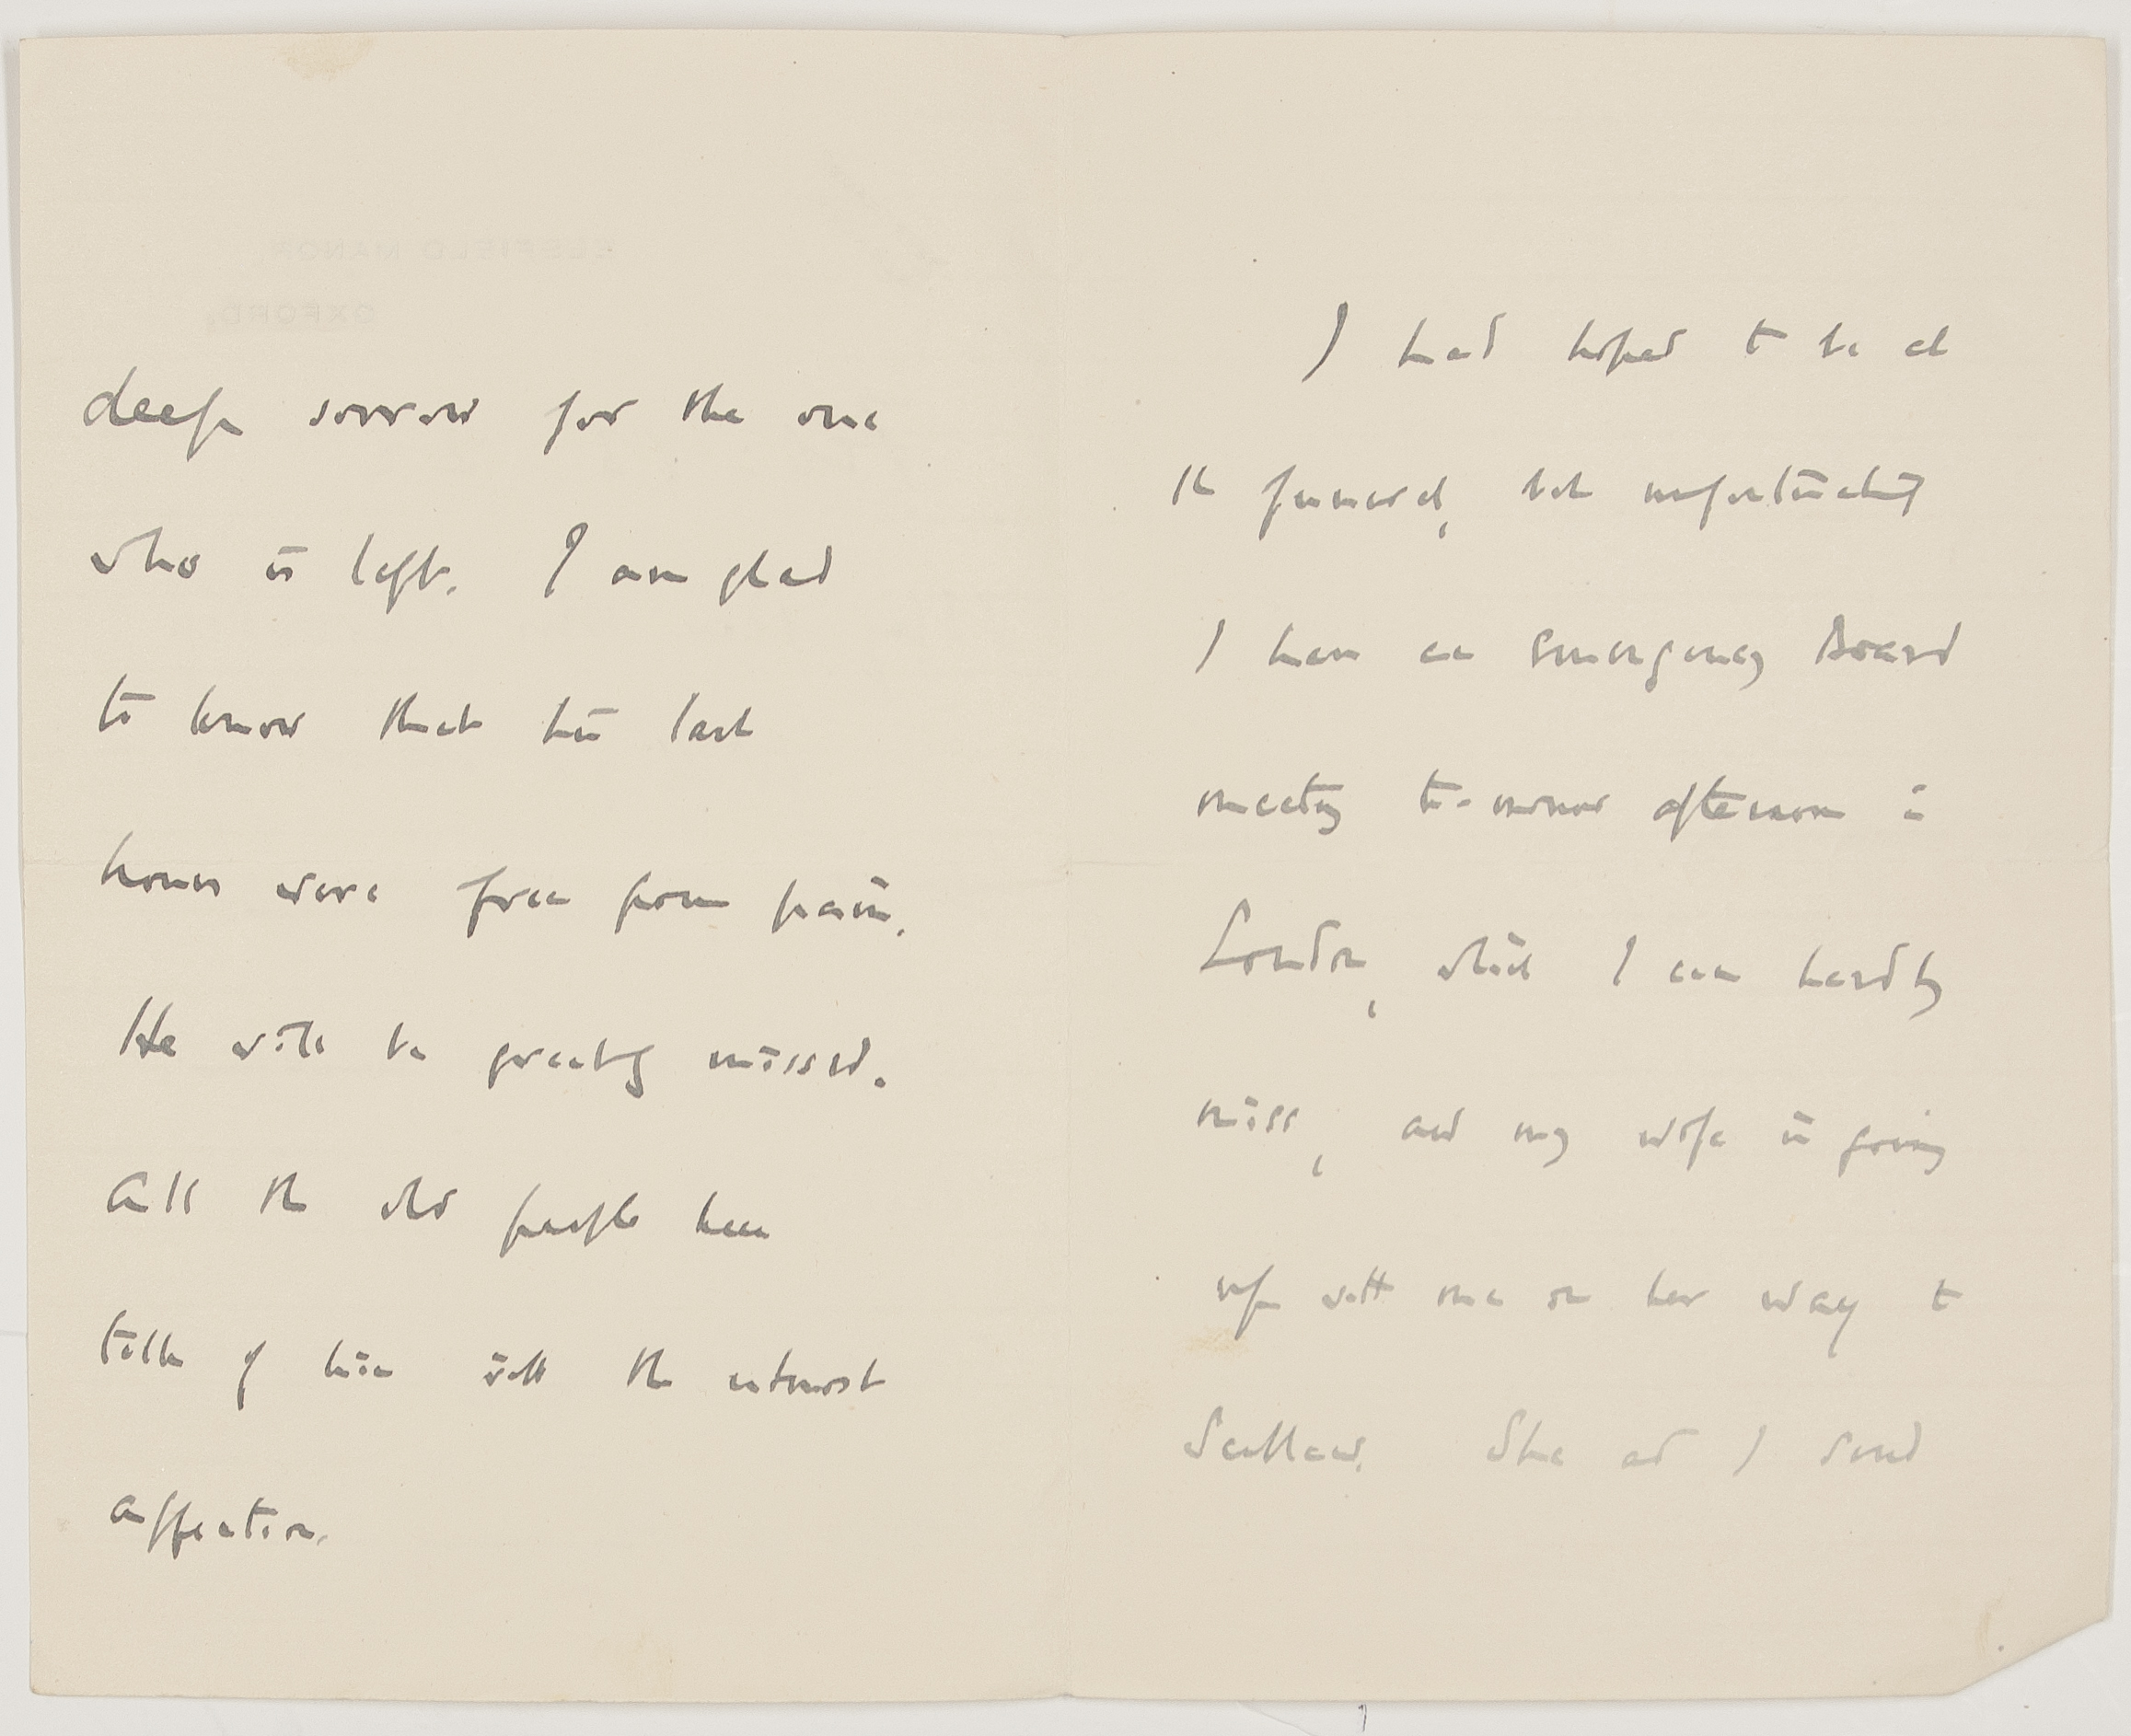 ELSFIELD MANOR,
OXFORD.
deep sorrow for the one
who is left. I am glad
to know that his last
hours were free from pain.
He will be greatly missed.
All the old people here
talk of him with the utmost
affection.
I had hoped to be at
the funeral, but unfortunately
I have an emergency Board
meeting to-morrow afternoon in
London, which I can hardly
miss, and my wife is going
up with me on her way to
Scotland. She and I send